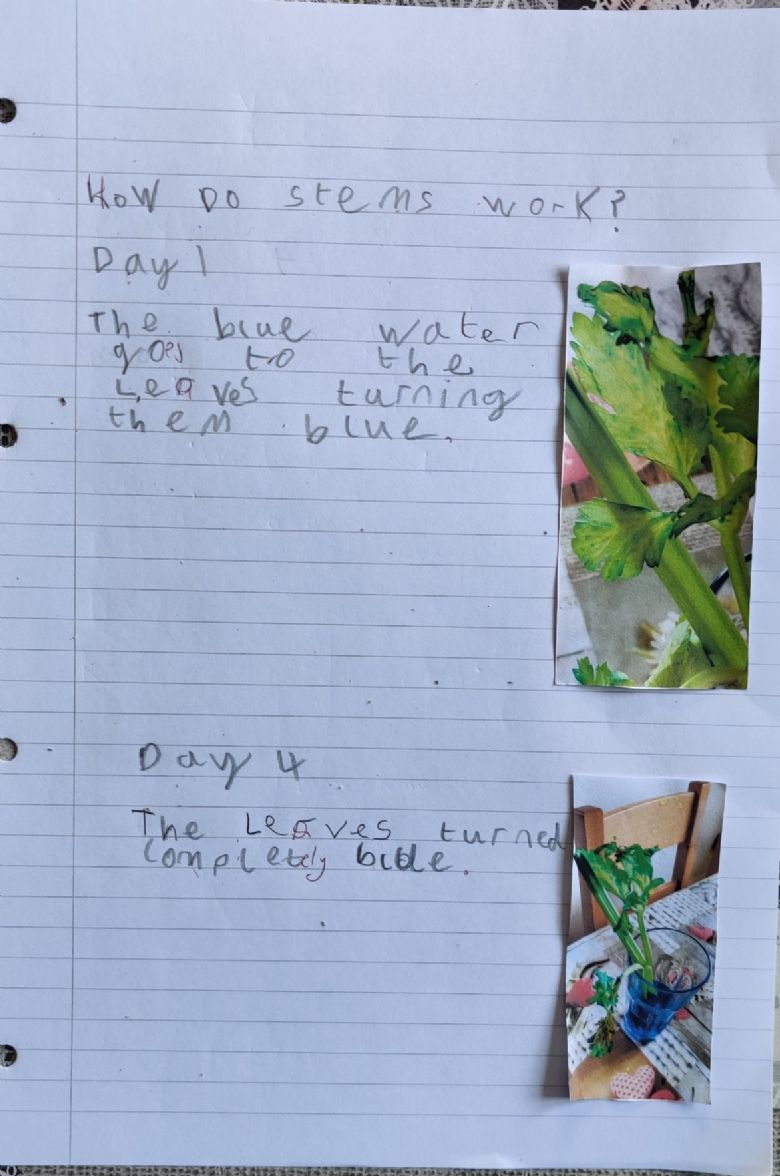 How Do stems work?
Day 1
The blue water
goes to the
Leaves turning
them blue.
Day 4
The Leaves turned
completely blue.